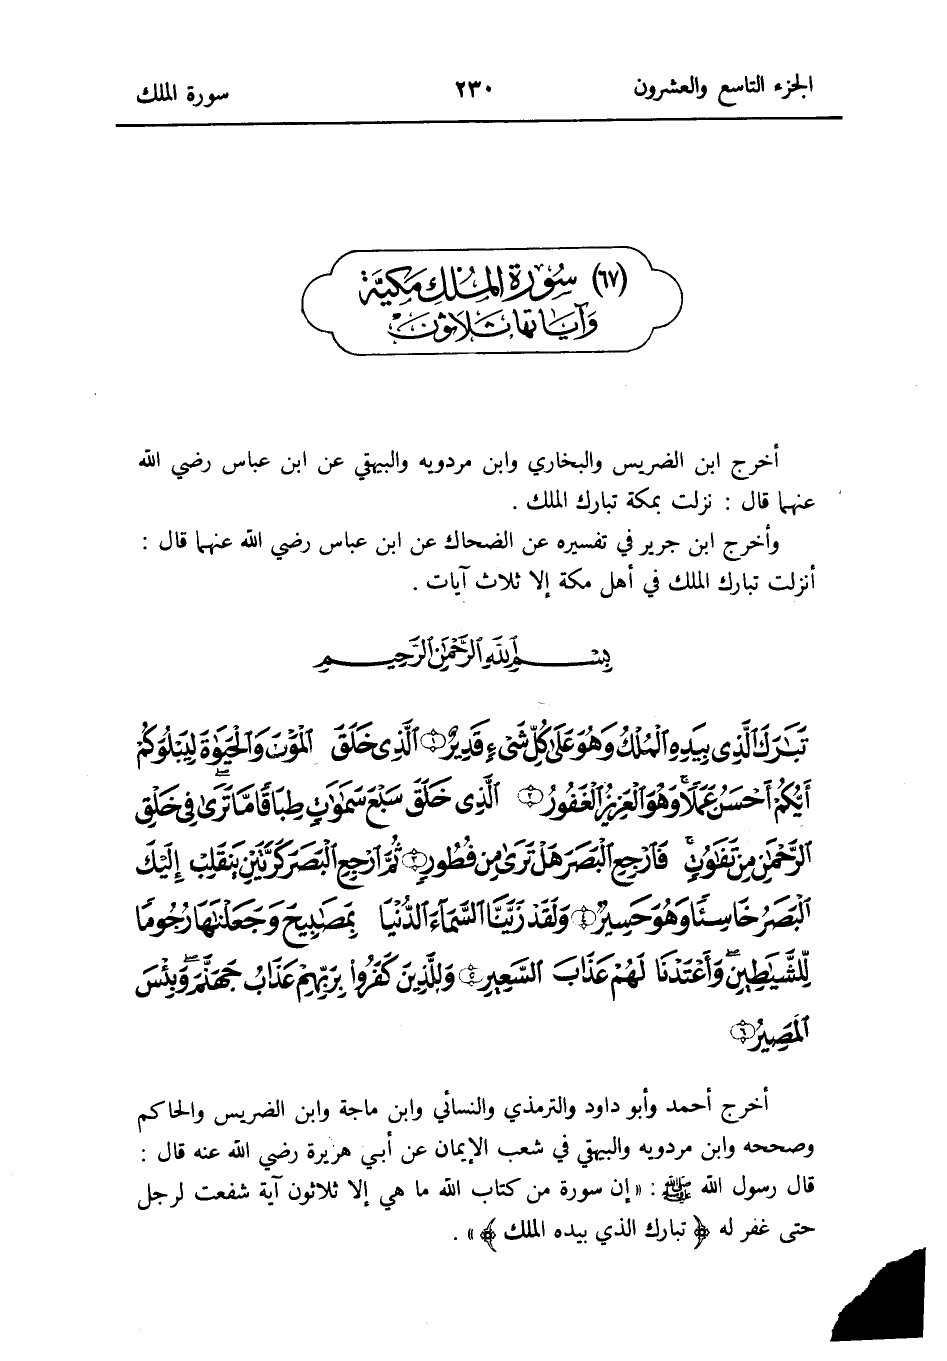 الجزء التاسع والعشرون ٢٣٠ سورة الملك
(٦٧) سُورَةُ الْمُلْكِ مَكِيَّة
وَآيَاتُهَا ثَلَاثُونَ
أخرج ابن الضريس والبخاري وابن مردويه والبيهقي عن ابن عباس رضي الله
عنهما قال : نزلت بمكة تبارك الملك .
وأخرج ابن جرير في تفسيره عن الضحاك عن ابن عباس رضي الله عنهما قال :
أنزلت تبارك الملك في أهل مكة إلا ثلاث آيات .
بِسْمِ ٱللَّهِ ٱلرَّحْمَٰنِ ٱلرَّحِيمِ
تَبَٰرَكَ ٱلَّذِى بِيَدِهِ ٱلْمُلْكُ وَهُوَ عَلَىٰ كُلِّ شَىْءٍ قَدِيرٌ ۝١ ٱلَّذِى خَلَقَ ٱلْمَوْتَ وَٱلْحَيَوٰةَ لِيَبْلُوَكُمْ
أَيُّكُمْ أَحْسَنُ عَمَلًا ۚ وَهُوَ ٱلْعَزِيزُ ٱلْغَفُورُ ۝٢ ٱلَّذِى خَلَقَ سَبْعَ سَمَٰوَٰتٍ طِبَاقًا ۖ مَّا تَرَىٰ فِى خَلْقِ
ٱلرَّحْمَٰنِ مِن تَفَٰوُتٍ ۖ فَٱرْجِعِ ٱلْبَصَرَ هَلْ تَرَىٰ مِن فُطُورٍ ۝٣ ثُمَّ ٱرْجِعِ ٱلْبَصَرَ كَرَّتَيْنِ يَنقَلِبْ إِلَيْكَ
ٱلْبَصَرُ خَاسِئًا وَهُوَ حَسِيرٌ ۝٤ وَلَقَدْ زَيَّنَّا ٱلسَّمَآءَ ٱلدُّنْيَا بِمَصَٰبِيحَ وَجَعَلْنَٰهَا رُجُومًا
لِّلشَّيَٰطِينِ ۖ وَأَعْتَدْنَا لَهُمْ عَذَابَ ٱلسَّعِيرِ ۝٥ وَلِلَّذِينَ كَفَرُوا۟ بِرَبِّهِمْ عَذَابُ جَهَنَّمَ ۖ وَبِئْسَ
ٱلْمَصِيرُ ۝٦
أخرج أحمد وأبو داود والترمذي والنسائي وابن ماجة وابن الضريس والحاكم
وصححه وابن مردويه والبيهقي في شعب الإيمان عن أبي هريرة رضي الله عنه قال :
قال رسول الله ﷺ : «إن سورة من كتاب الله ما هي إلا ثلاثون آية شفعت لرجل
حتى غفر له ﴿ تبارك الذي بيده الملك ﴾» .